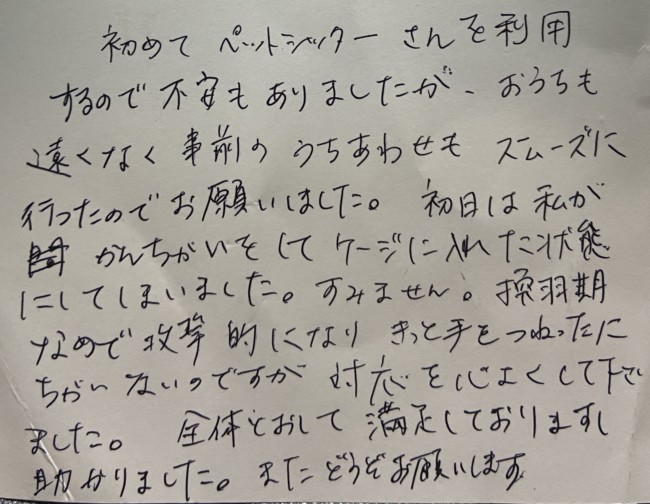 初めて ペットシッターさんを利用
するので不安もありましたが、おうちも
遠くなく事前のうちあわせもスムーズに
行ったのでお願いしました。初日は私が
かんちがいをしてケージに入れた状態
にしてしまいました。すみません。換羽期
なので攻撃的になりきっと手をつねったに
ちがいないのですが対応を心よくして下さい
ました。全体とおして満足しておりますし
助かりました。またどうぞお願いします